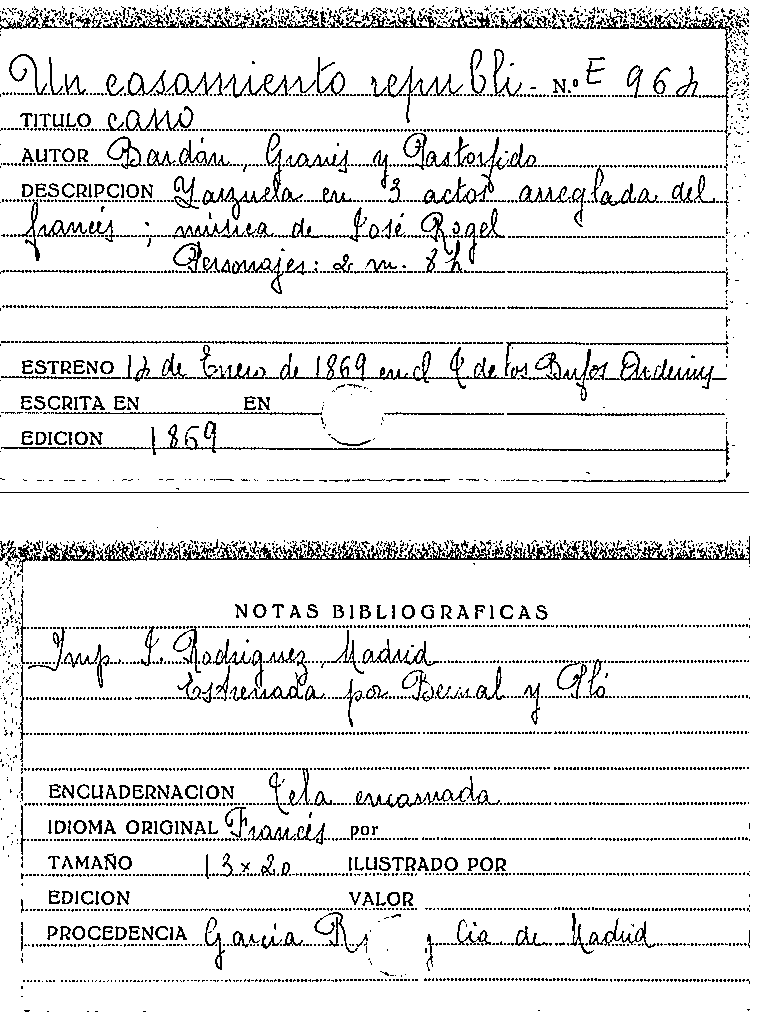 Un casamiento republi- N.º E 962
TITULO cano
AUTOR Bardán, Granés y Pastorfido
DESCRIPCION Zarzuela en 3 actos arreglada del
francés; música de José Rogel
Personajes: 2 m. 8 h
ESTRENO 12 de Enero de 1869 en el T. de los Bufos Arderius
ESCRITA EN EN
EDICION 1869
NOTAS BIBLIOGRAFICAS
Imp. J. Rodriguez, Madrid
Estrenada por Bernal y Pló
ENCUADERNACION Tela encarnada
IDIOMA ORIGINAL Francés por
TAMAÑO 13 x 20 ILUSTRADO POR
EDICION VALOR
PROCEDENCIA García y Cia de Madrid